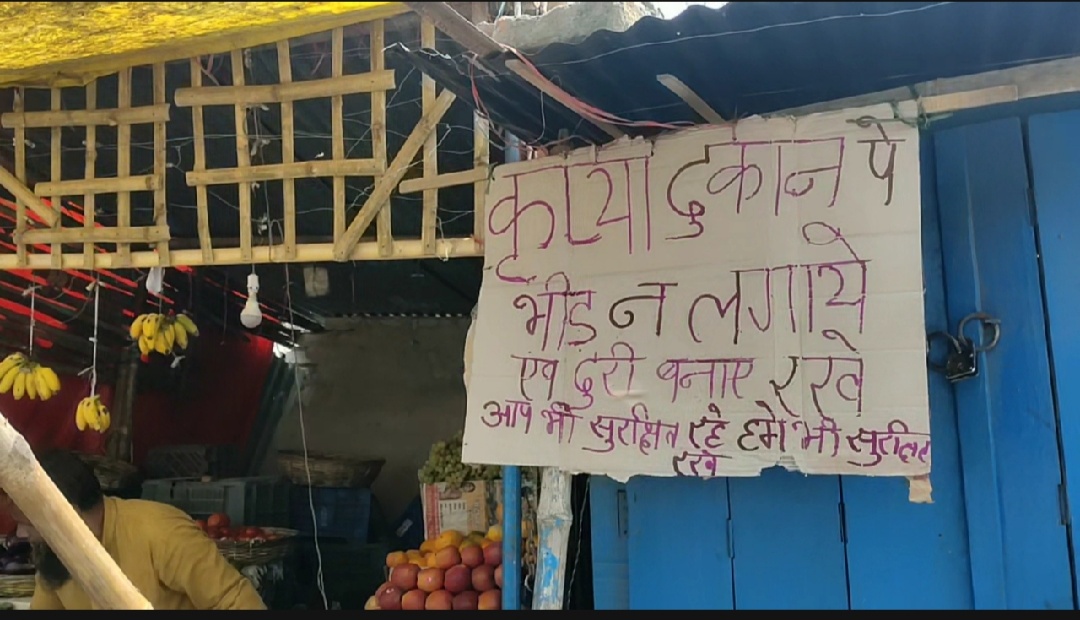 कृप्या दुकान पे
भीड़ न लगाये
एव दुरी बनाए रखे
आप भी सुरक्षित रहे हमे भी सुरक्षित
रखे